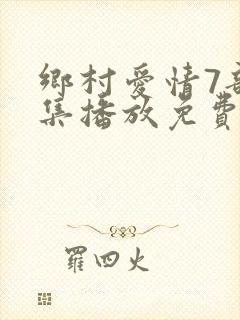 鄉村愛情7
集播放免費
羅四火